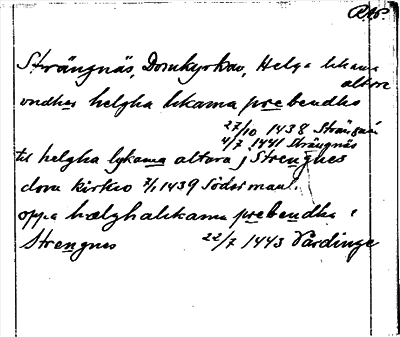 Strängnäs, Domkyrkan, Helga lekama
altare
vndher helgha lekama prebendhe
27/10 1438 Strängnäs
4/7 1441 Strängnäs
til helgha lykama altara j Strengnes
dom kirkio 7/1 1439 Söderman.
oppa hælghalekama prebendha i
Strengnes 22/7 1443 Vårdinge